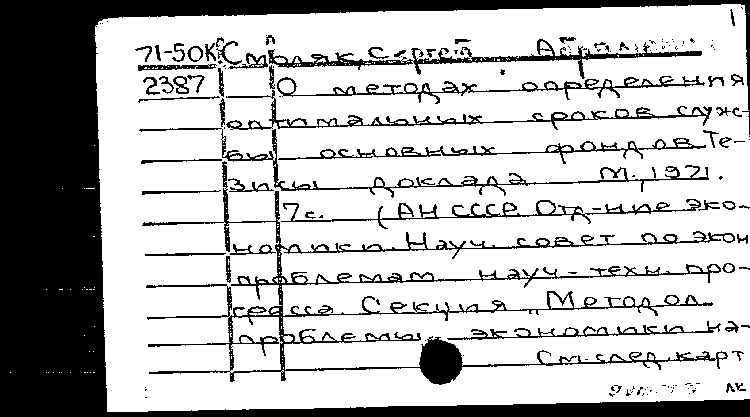 1
71-50К Смоляк, Сергей Абрамович
2387 О методах определения
оптимальных сроков служ-
бы основных фондов. Те-
зисы доклада. М., 1971.
7с. (АН СССР. Отд-ние эко-
номики. Науч. совет по экон
проблемам науч.-техн. про-
гресса. Секция „Методол.
проблемы экономики на-
См. след. карт
ЛК